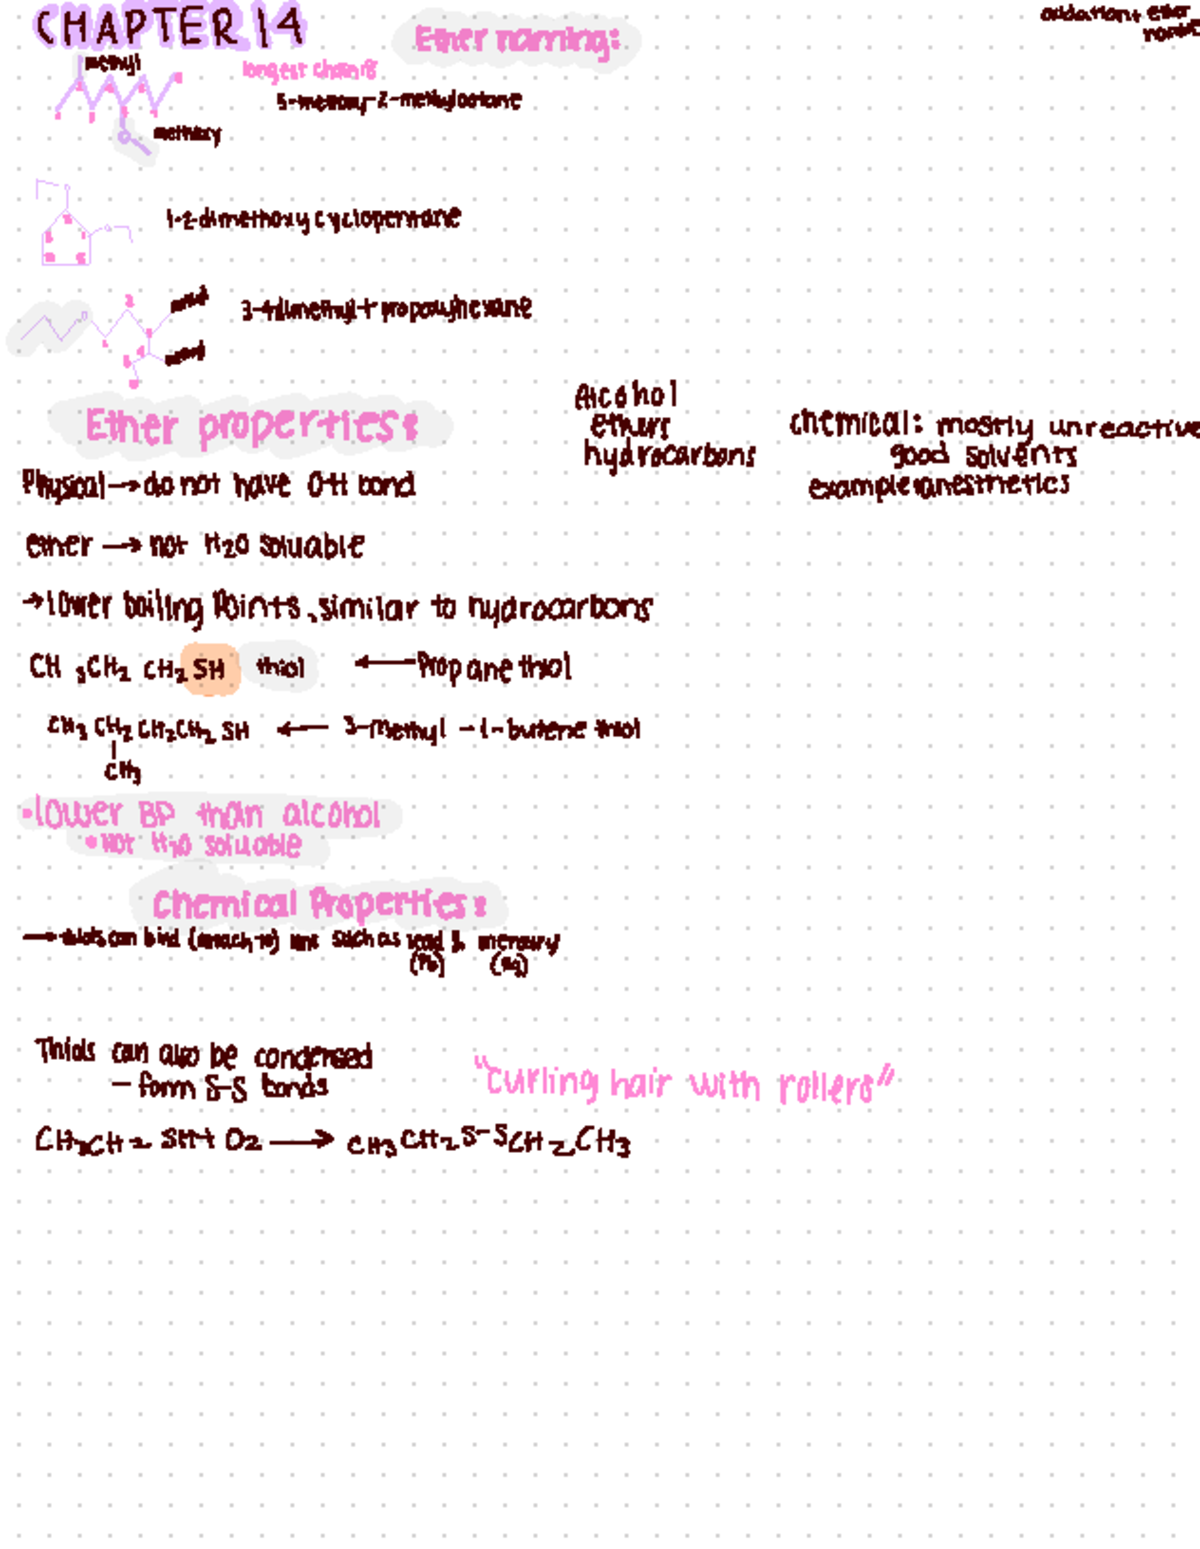 CHAPTER 14
Ether naming:
methyl
longest chain: 8
5-methoxy-2-methyloctane
methoxy
1-2-dimethoxy cyclopentane
3-4dimethyl-1-propoxyhexane
Ether properties:
Alcohol
ethers
hydrocarbons
chemical: mostly unreactive
good solvents
example: anesthetics
Physical → do not have OH bond
ether → not H2O soluable
→ lower boiling Points, similar to hydrocarbons
CH3CH2 CH2 SH thiol ← Propane thiol
CH3 CH2 CH2CH2 SH ← 3-methyl -1-butene thiol
CH3
• lower BP than alcohol
• not H2O soluable
Chemical Properties:
→ thiols can bind (attach to) such as lead & mercury
(Pb) (Hg)
Thiols can also be condensed
- form S-S bonds
"curling hair with rollers"
CH3CH2 SH + O2 → CH3 CH2 S-SCH2CH3